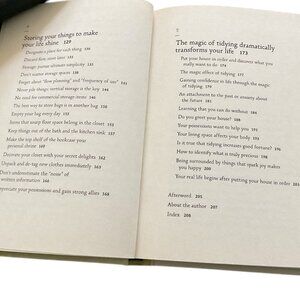 4
Storing your things to make
your life shine 129
Designate a place for each thing 130
Discard first, store later 133
Storage: pursue ultimate simplicity 135
Don't scatter storage spaces 138
Forget about "flow planning" and "frequency of use" 141
Never pile things: vertical storage is the key 145
No need for commercial storage items 148
The best way to store bags is in another bag 151
Empty your bag every day 154
Items that usurp floor space belong in the closet 156
Keep things out of the bath and the kitchen sink 157
Make the top shelf of the bookcase your
personal shrine 160
Decorate your closet with your secret delights 162
Unpack and de-tag new clothes immediately 163
Don't underestimate the "noise" of
written information 166
Appreciate your possessions and gain strong allies 168
5
The magic of tidying dramatically
transforms your life 173
Put your house in order and discover what you
really want to do 174
The magic effect of tidying
Gaining confidence in life through the magic
of tidying 177
An attachment to the past or anxiety
about the future 181
Learning that you can do without 184
Do you greet your house? 188
Your possessions want to help you 190
Your living space affects your body 193
Is it true that tidying increases good fortune? 195
How to identify what is truly precious 198
Being surrounded by things that spark joy makes
you happy 200
Your real life begins after putting your house in order 203
Afterword 205
About the author 207
Index 208